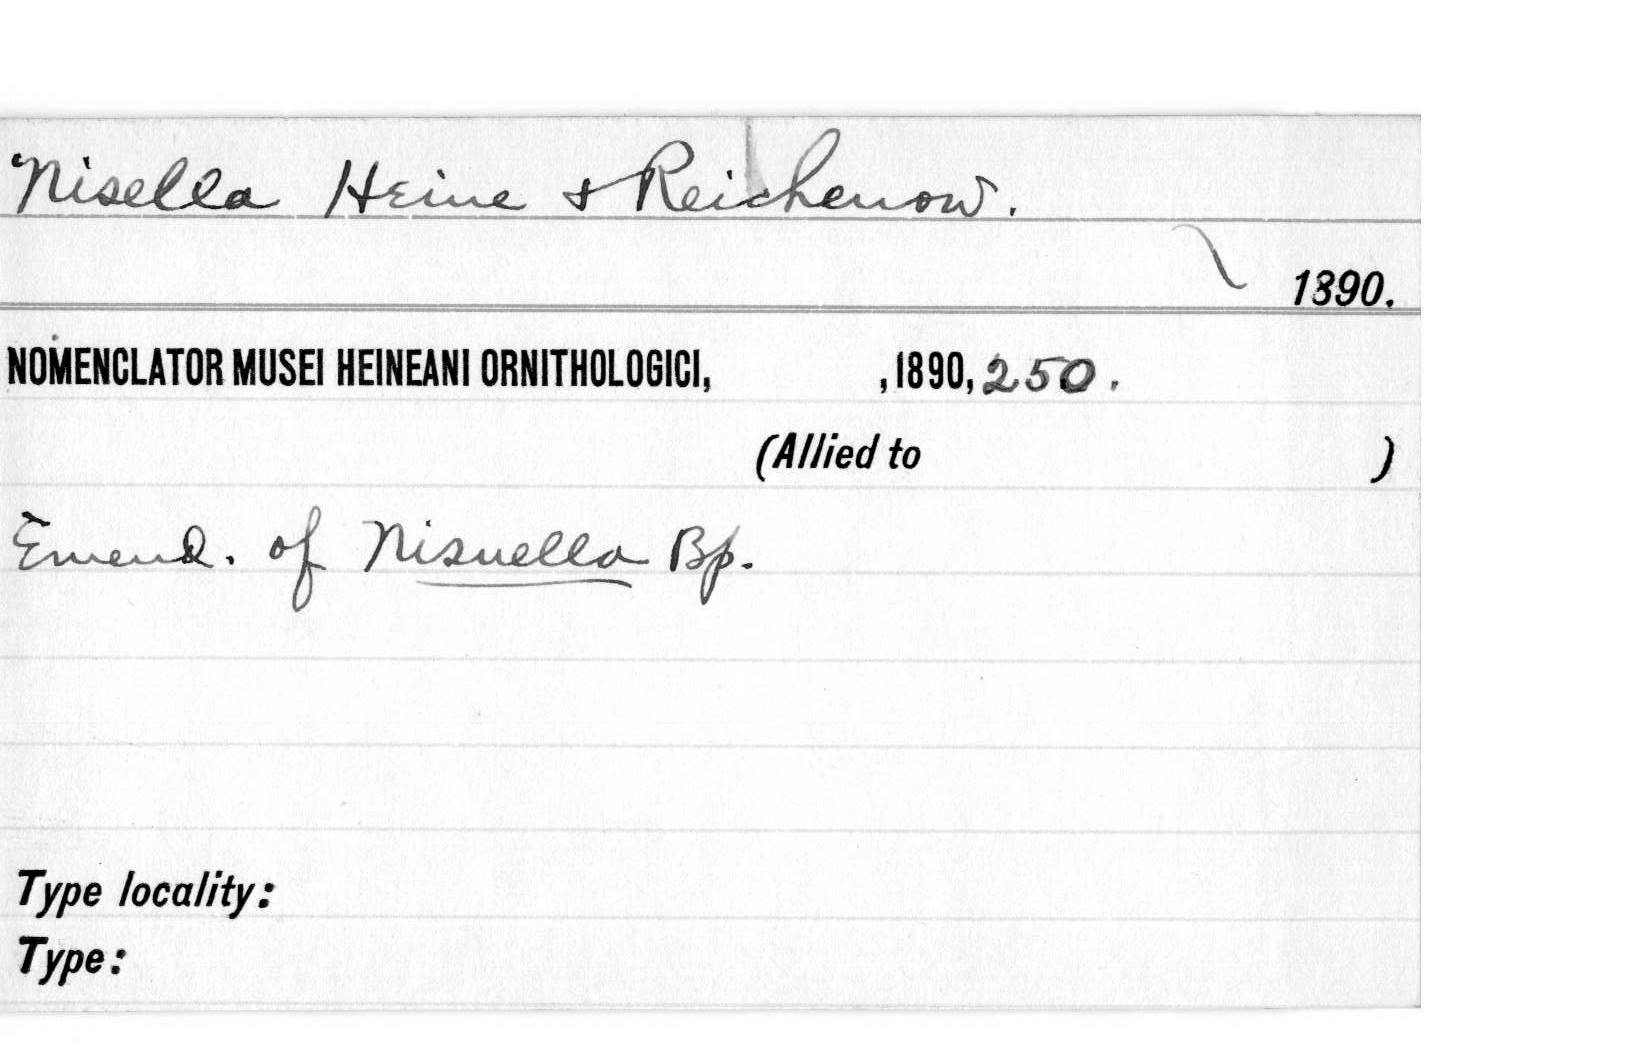 Nisella Heine & Reichenow.
1890.
NOMENCLATOR MUSEI HEINEANI ORNITHOLOGICI, , 1890, 250.
(Allied to )
Emend. of Nisuella Bp.
Type locality:
Type: